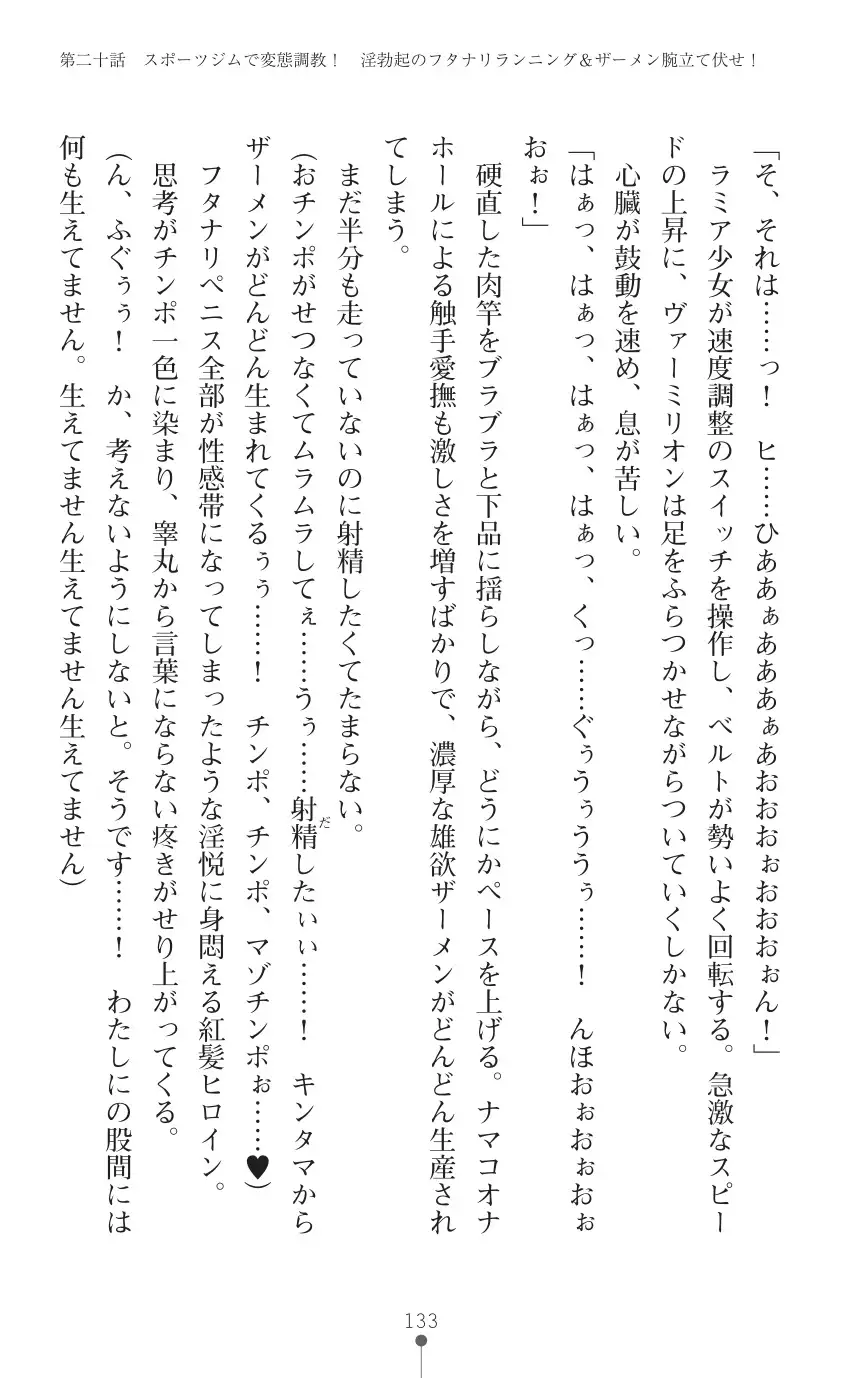 第二十話　スポーツジムで変態調教！　淫勃起のフタナリランニング＆ザーメン腕立て伏せ！
「そ、それは……っ！　ヒ……ひああぁあああぁあおおおぉおおおぉん！」
　ラミア少女が速度調整のスイッチを操作し、ベルトが勢いよく回転する。急激なスピー
ドの上昇に、ヴァーミリオンは足をふらつかせながらついていくしかない。
　心臓が鼓動を速め、息が苦しい。
「はぁっ、はぁっ、はぁっ、はぁっ、くっ……ぐぅうぅううぅ……！　んほおぉおぉおぉ
おぉ！」
　硬直した肉竿をブラブラと下品に揺らしながら、どうにかペースを上げる。ナマコオナ
ホールによる触手愛撫も激しさを増すばかりで、濃厚な雄欲ザーメンがどんどん生産され
てしまう。
　まだ半分も走っていないのに射精したくてたまらない。
（おチンポがせつなくてムラムラしてぇ……うぅ……射精だしたいぃぃ……！　キンタマから
ザーメンがどんどん生まれてくるぅぅ……！　チンポ、チンポ、マゾチンポぉ……♥）
　フタナリペニス全部が性感帯になってしまったような淫悦に身悶える紅髪ヒロイン。
　思考がチンポ一色に染まり、睾丸から言葉にならない疼きがせり上がってくる。
（ん、ふぐぅぅ！　か、考えないようにしないと。そうです……！　わたしにの股間には
何も生えてません。生えてません生えてません生えてません）
133